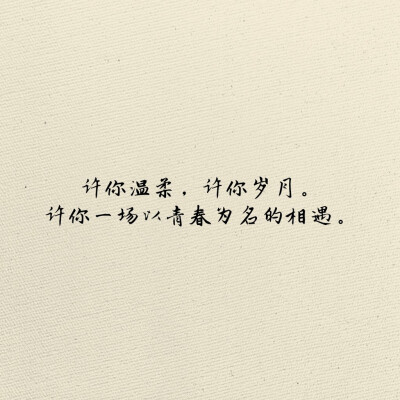 许你温柔，许你岁月。
许你一场以青春为名的相遇。